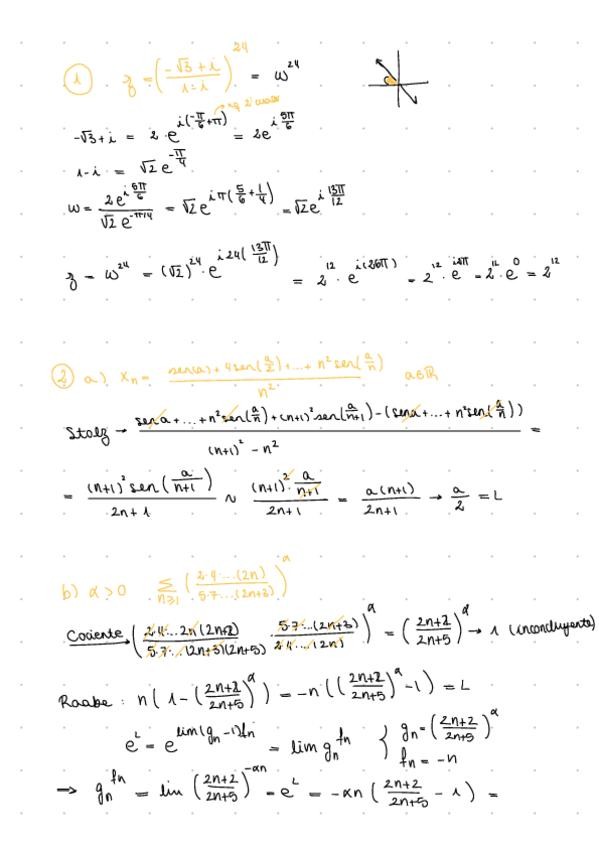 1 z = ((-√3 + i)/(1-i))^24 = w^24
-√3+i = 2·e^(i(-π/6+π)) = 2e^(i 5π/6)
1-i = √2 e^(-π/4)
w = (2e^(i 5π/6))/(√2 e^(-π/4)) = √2 e^(iπ(5/6+1/4)) = √2 e^(i 13π/12)
z = w^24 = (√2)^24 · e^(i24(13π/12)) = 2^12 · e^(i(26π)) = 2^12 · e^(i2π) = 2^12 · e^0 = 2^12
2 a) Xn = (sen(a) + 4sen(a/2) + ... + n² sen(a/n))/n² a∈ℝ
Stolz → (sen a + ... + n² sen(a/n) + (n+1)² sen(a/(n+1)) - (sen a + ... + n² sen(a/n)))/((n+1)² - n²) =
= ((n+1)² sen(a/(n+1)))/(2n+1) ~ ((n+1)² · a/(n+1))/(2n+1) = a(n+1)/(2n+1) → a/2 = L
b) α>0 Σ n≥1 ((2·4·...(2n))/(5·7·...(2n+3)))^α
Cociente ((2·4...2n(2n+2))/(5·7...(2n+3)(2n+5)) · (5·7...(2n+3))/(2·4...(2n)))^α = ((2n+2)/(2n+5))^α → 1 (inconcluyente)
Raabe: n(1 - ((2n+2)/(2n+5))^α) = -n(((2n+2)/(2n+5))^α - 1) = L
e^L = e^(lim(gn-1)fn) = lim gn^fn { gn = ((2n+2)/(2n+5))^α
fn = -n
→ gn^fn = lim ((2n+2)/(2n+5))^(-αn) = e^L = -αn((2n+2)/(2n+5) - 1) =